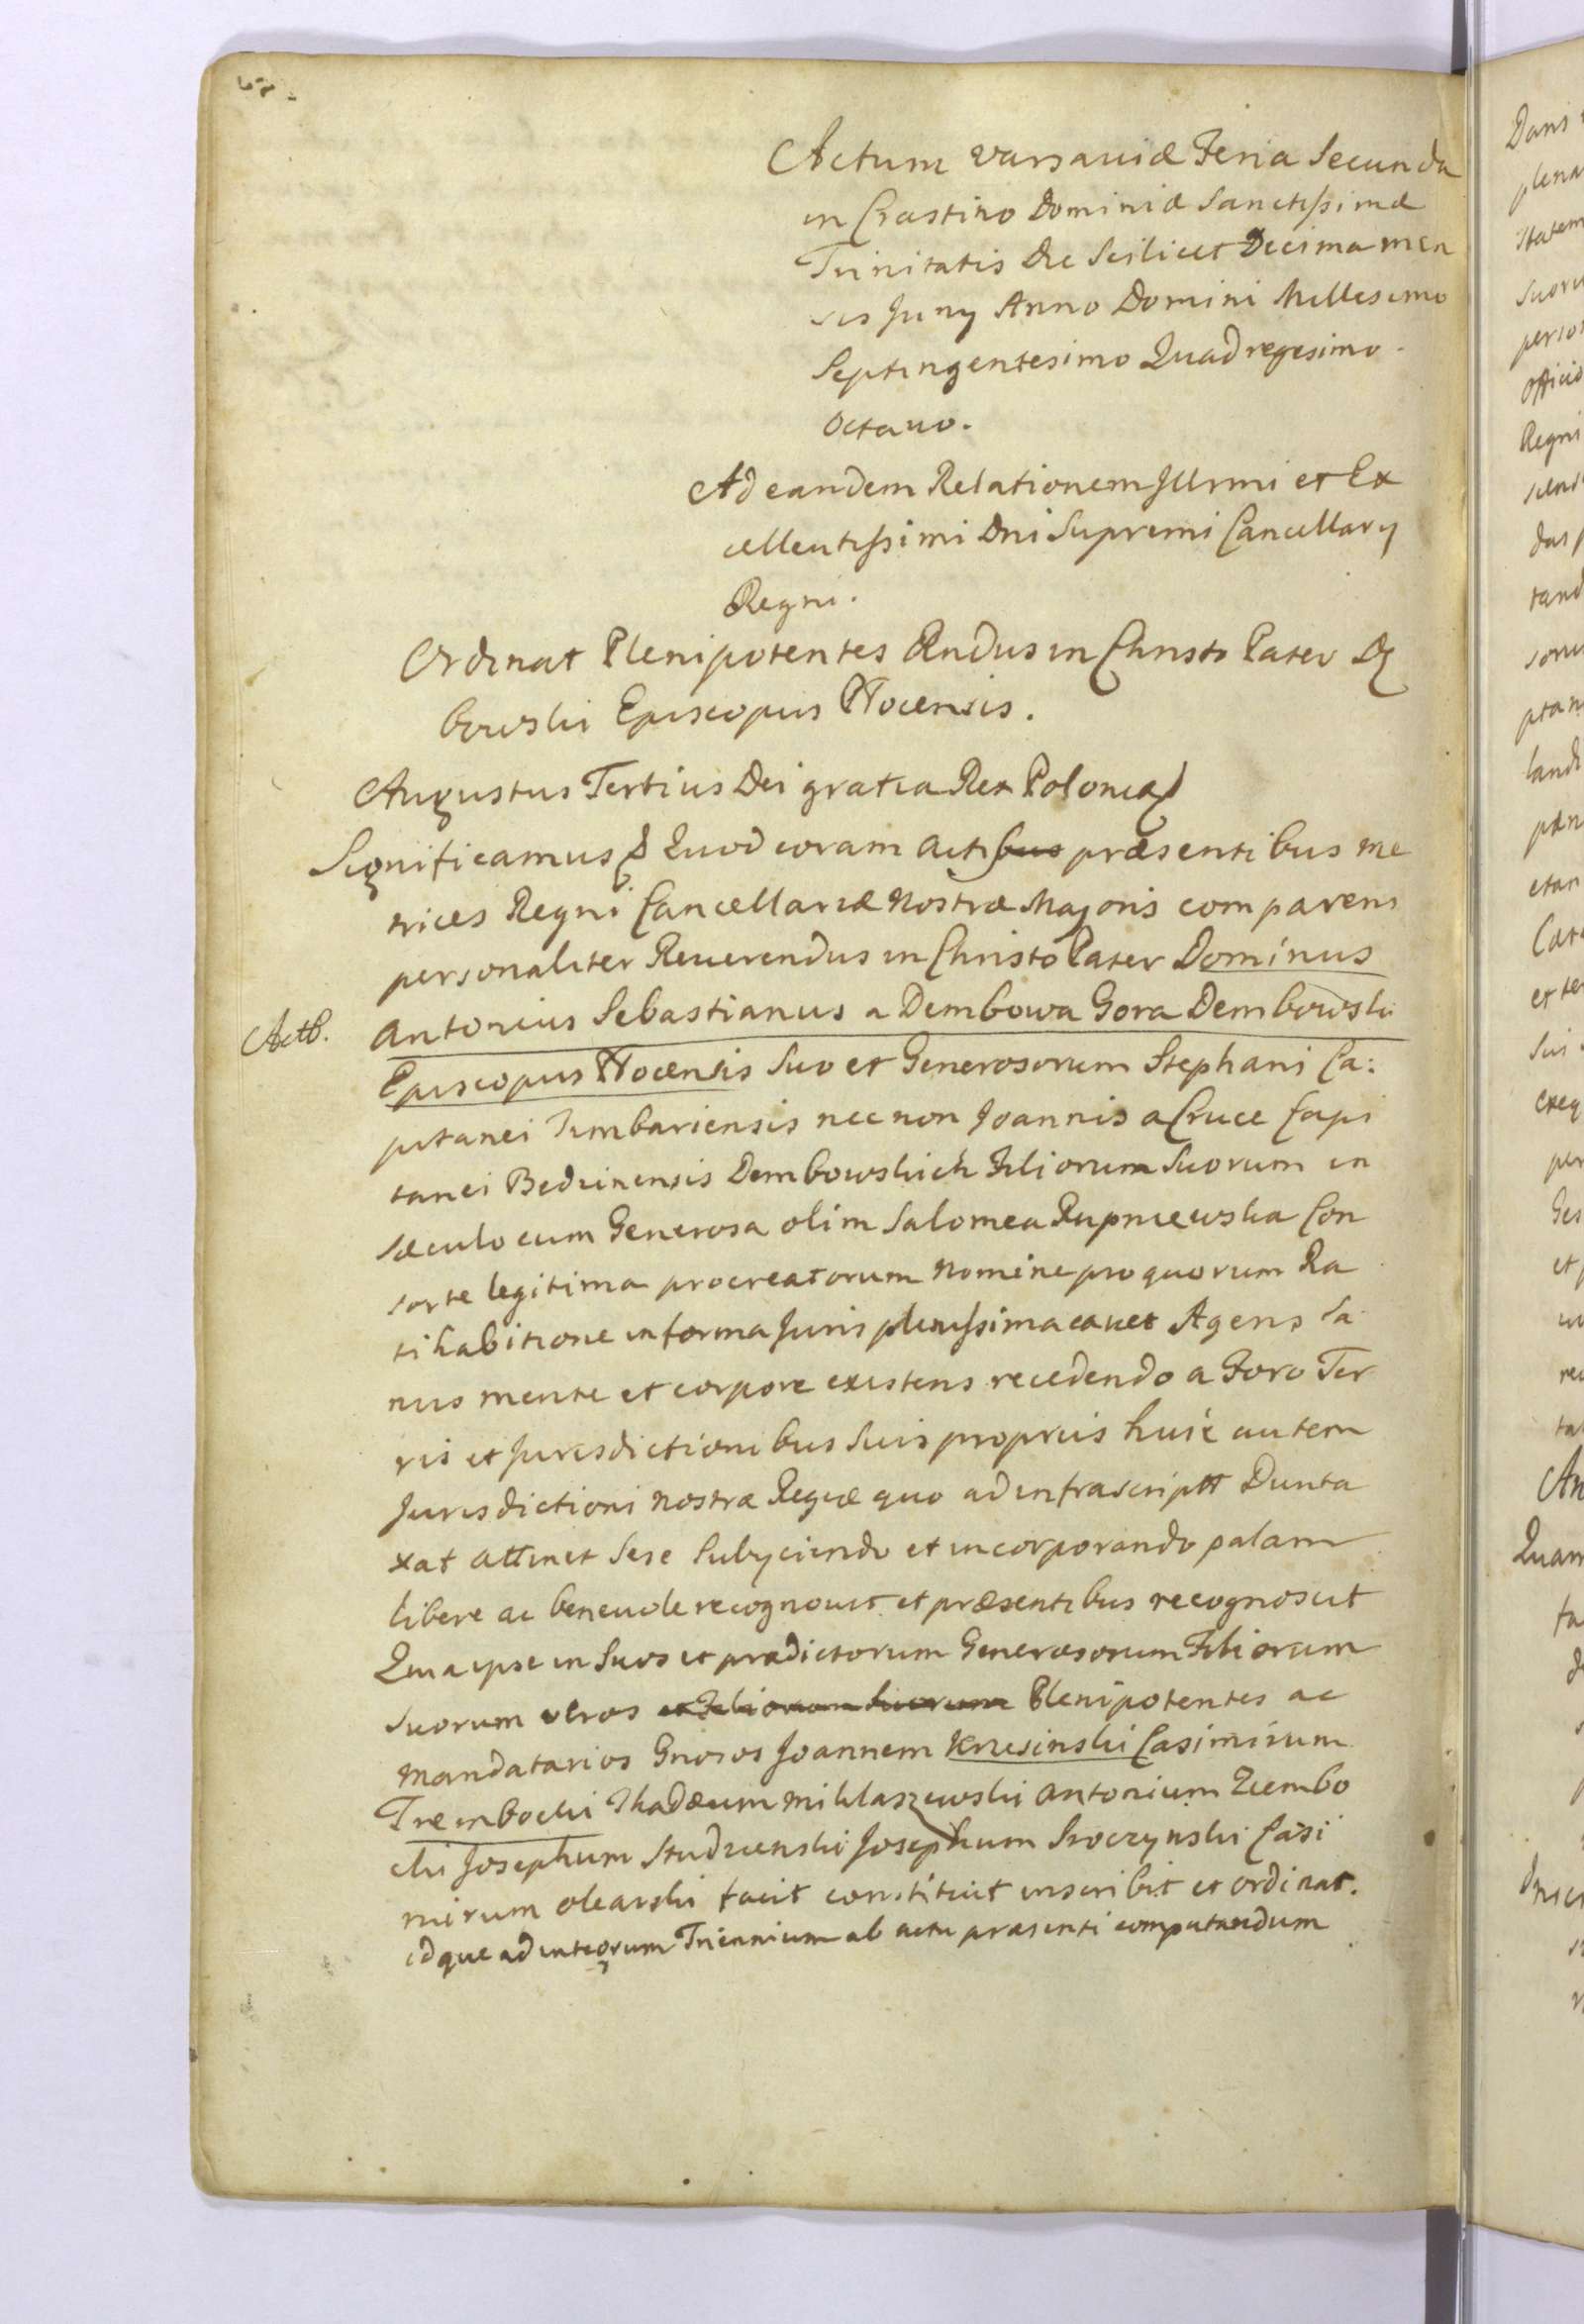 Actum Varsaviæ Feria Secunda
in Crastino Dominicæ Sanctissimæ
Trinitatis Die Scilicet Decima men
sis Juny Anno Domini Millesimo
Septingentesimo Quadragesimo
Octavo.
Ad eandem Relationem Illrmi et Ex
cellentissimi Dni Supremi Cancellary
Regni.
Ordinat Plenipotentes Rndus in Christo Pater Dę
bowski Episcopus Płocensis.
Augustus Tertius Dei gratia Rex Poloniæ
Significamus Quod coram actibus præsentibus me
trices Regni Cancellariæ Nostræ Majoris comparens
personaliter Reverendus in Christo Pater Dominus
Actb.
Antonius Sebastianus a Dembowa Gora Dembowski
Episcopus Płocensis Suo et Generosorum Stephani Ca:
pitanei Tymbariensis nec non Joannis a Cruce Capi
tanei Bedzinensis Dembowskich Filiorum Suorum in
sæculo cum Generosa olim Salomea Rupniewska Con
sorte legitima procreatorum Nomine pro quorum Ra
tihabitione in forma Juris plenissima cavet Agens Sa
nus mente et corpore existens recedendo a Foro Ter
ris et Jurisdictionibus Suis propriis huic autem
Jurisdictioni Nostræ Regiæ quo ad infrascriptt Dunta
xat attinet Sese Subyciendo et incorporando palam
libere ac benevole recognovit et præsentibus recognoscit
Quia ipse in Suos et prædictorum Generosorum Filiorum
Suorum veros et Filiorum Suorum Plenipotentes ac
Mandatarios Gnosos Joannem Krzesinski Casimirum
Trembecki Thadæum Miklaszewski Antonium Ziembo
cki Josephum Studzienski Josephum Skoczynski Casi
mirum Olearski facit constituit inscribit et ordinat.
idque ad integrum Triennium ab actu præsenti computandum